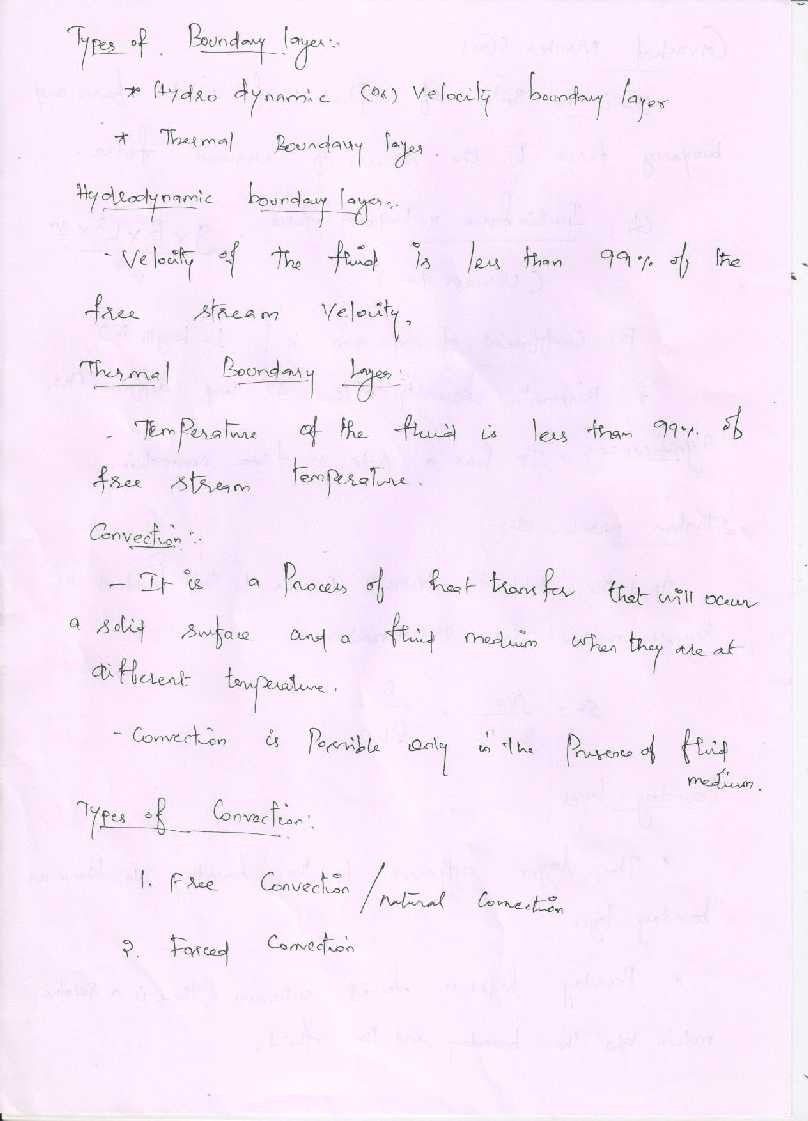 Types of Boundary layer:-
* Hydro dynamic (or) Velocity boundary layer
* Thermal Boundary layer
Hydrodynamic boundary layer:-
- Velocity of the fluid is less than 99% of the
free stream Velocity,
Thermal Boundary Layer:-
- Temperature of the fluid is less than 99% of
free stream temperature.
Convection:-
- It is a Process of heat transfer that will occur
a solid surface and a fluid medium when they are at
different temperature.
- Convection is Possible only in the Presence of fluid
medium.
Types of Convection:-
1. Free Convection / natural Convection
2. Forced Convection